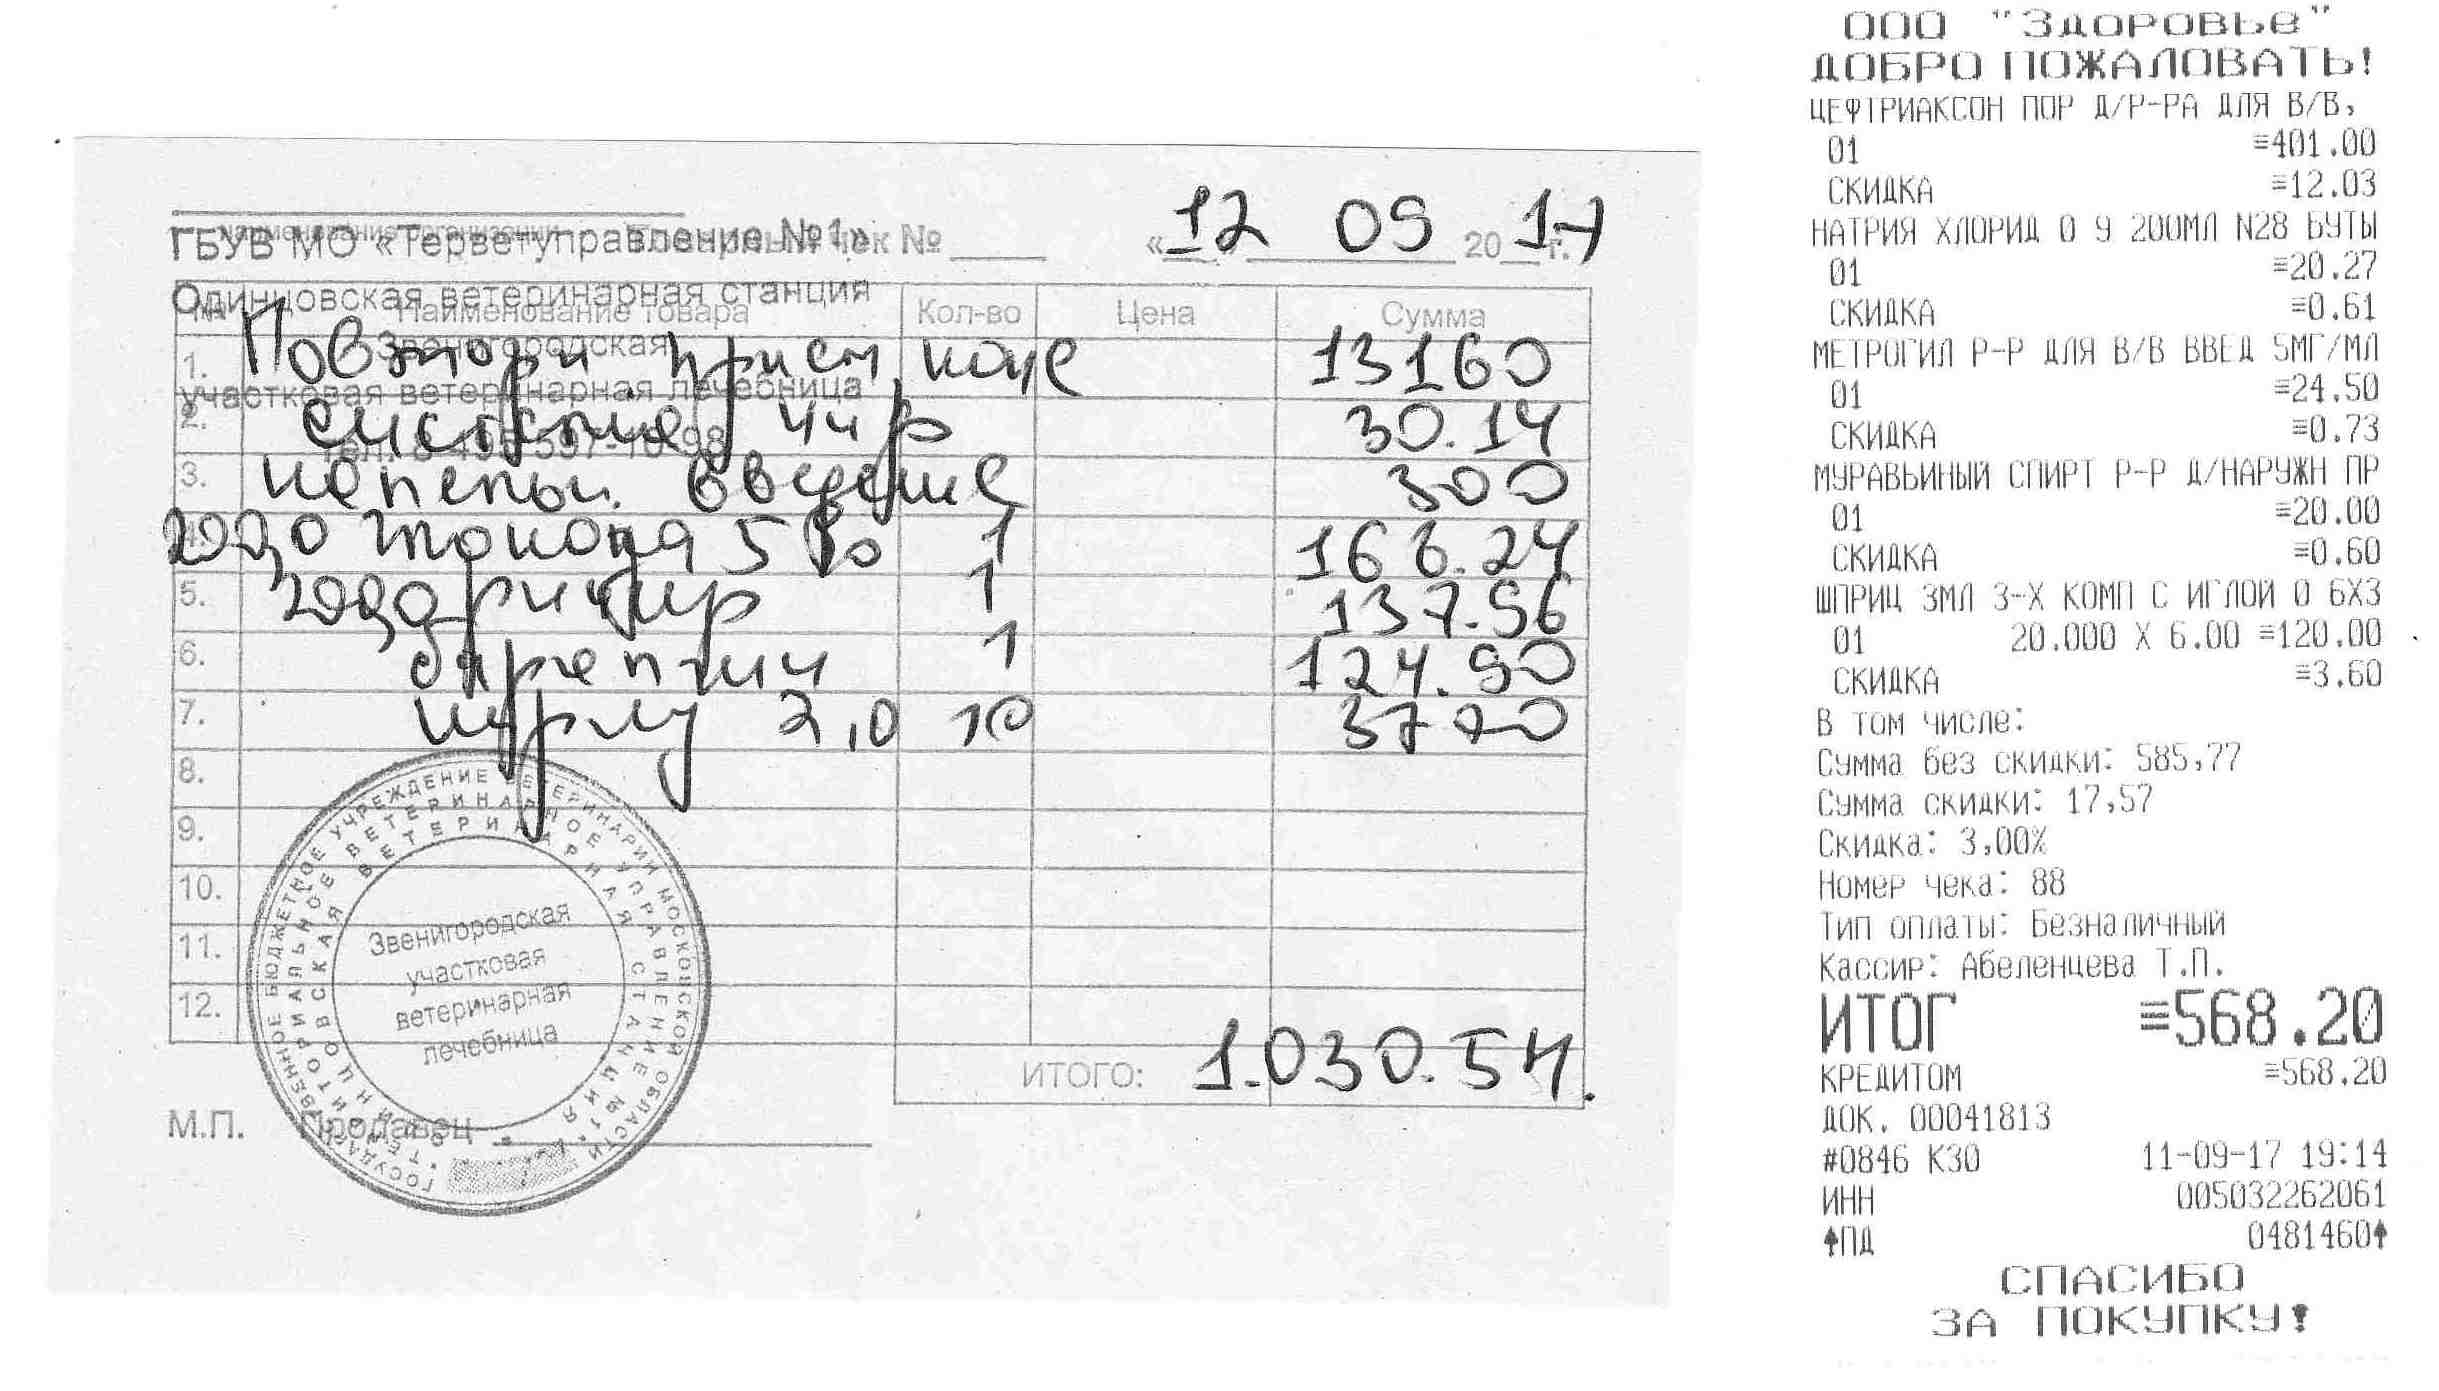 ГБУВ МО «Терветуправление №1»
Товарный чек № «12» 09 2017 г.
Одинцовская ветеринарная станция
Звенигородская
участковая ветеринарная лечебница
№ Наименование товара Кол-во Цена Сумма
1. Повторн прием 13160
2. 30.14
3. введение 300
4. 5% 1 166.24
5. 1 137.96
6. 1 124.90
7. 2,0 10 3770
8.
9.
10.
11.
12.
ИТОГО: 1.030.54.
М.П. Продавец
ГОСУДАРСТВЕННОЕ БЮДЖЕТНОЕ УЧРЕЖДЕНИЕ ВЕТЕРИНАРИИ МОСКОВСКОЙ ОБЛАСТИ
ТЕРРИТОРИАЛЬНОЕ ВЕТЕРИНАРНОЕ УПРАВЛЕНИЕ №1
ОДИНЦОВСКАЯ ВЕТЕРИНАРНАЯ СТАНЦИЯ
Звенигородская
участковая
ветеринарная
лечебница
ООО "Здоровье"
ДОБРО ПОЖАЛОВАТЬ!
ЦЕФТРИАКСОН ПОР Д/Р-РА ДЛЯ В/В,
01 ≡401.00
СКИДКА ≡12.03
НАТРИЯ ХЛОРИД 0 9 200МЛ N28 БУТЫ
01 ≡20.27
СКИДКА ≡0.61
МЕТРОГИЛ Р-Р ДЛЯ В/В ВВЕД 5МГ/МЛ
01 ≡24.50
СКИДКА ≡0.73
МУРАВЬИНЫЙ СПИРТ Р-Р Д/НАРУЖН ПР
01 ≡20.00
СКИДКА ≡0.60
ШПРИЦ 3МЛ 3-Х КОМП С ИГЛОЙ 0 6Х3
01 20.000 X 6.00 ≡120.00
СКИДКА ≡3.60
В том числе:
Сумма без скидки: 585,77
Сумма скидки: 17,57
Скидка: 3,00%
Номер чека: 88
Тип оплаты: Безналичный
Кассир: Абеленцева Т.П.
ИТОГ ≡568.20
КРЕДИТОМ ≡568.20
ДОК. 00041813
#0846 К30 11-09-17 19:14
ИНН 005032262061
↑ПД 0481460↑
СПАСИБО
ЗА ПОКУПКУ!